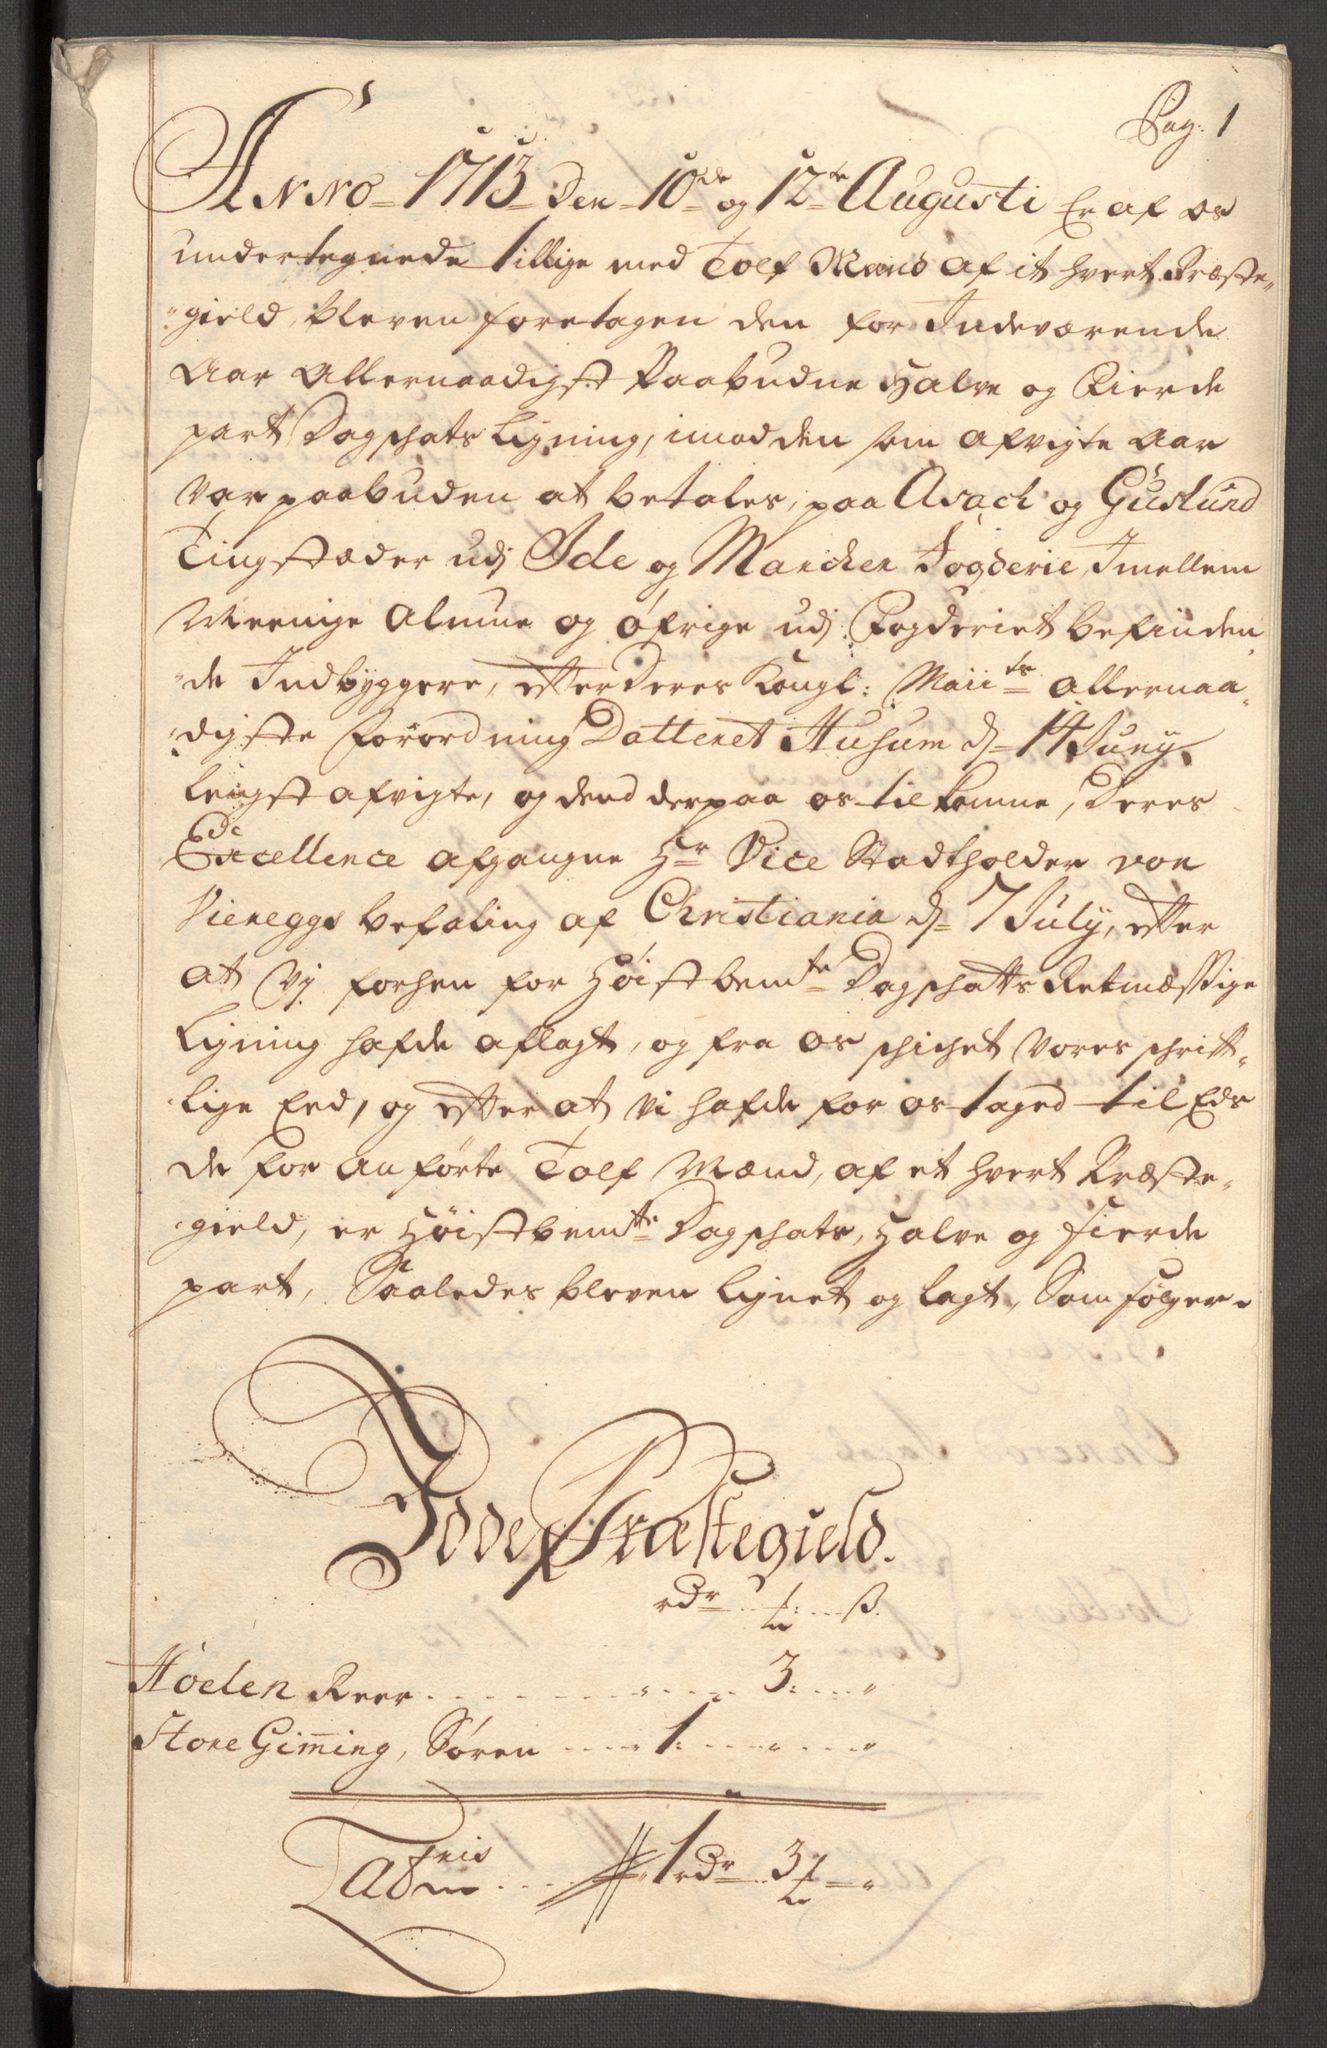 Pag: 1
Anno 1713 Den 10de og 12te Augusti Er af os
undertegnede tillige med Tolf Mand af it hvert Præste-
gield, bleven foretagen den for Indeværende
Aar Allernaadigst Paabudne Halve og Fierde
part Dagschats Ligning, imod den som afvigte Aar
var paabuden at betales, paa Asach og Guslund
Tingstæder udj Ide og Marcher Fogderie, Imellem
Meenige Almue og øfrige udj Fogderiet befinden-
de Indbyggere, efter Deres Kongl: Maiits allernaa-
digste Forordning Datteret Husum d= 14 Juny
lengst afvigte, og dend derpaa os tilkomne, Deres
Excellence afgangne Hr Vice Stadtholder von
Vieneggs befaling af Christiania d= 7 July, efter
at Vj forhen for Høistbemte Dagschatts Retmæssige
Ligning hafde aflagt, og fra os schichet Vores schrift-
lige Eed, og efter at vi hafde for os taged til Eds
de for anførte Tolf Mænd, af et hvert Præste-
gield, er Høistbemte Dagschats, Halve og fierde
part, Saaledes bleven lignet og lagt, Som følger.
Idde Præstegield.
rdr ... ß.
Høelen Peer 3
Store Gim̅ing, Søren 1
Lateris 1 rdr 3